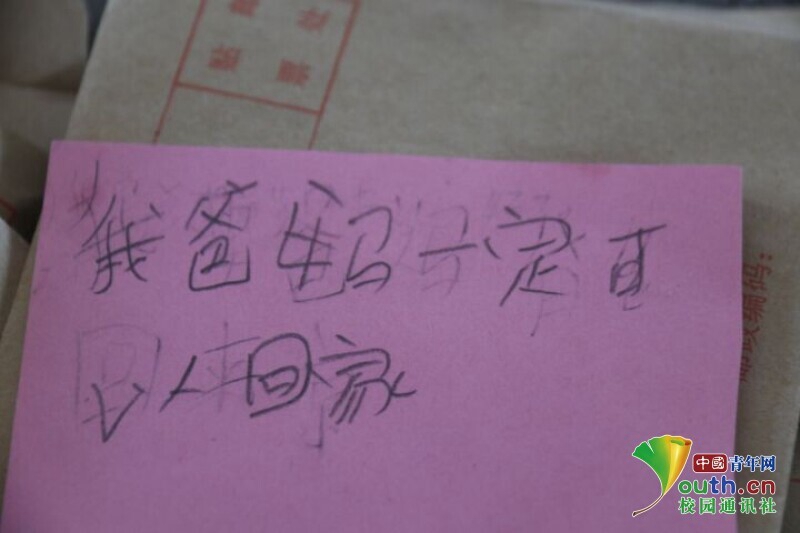 我爸妈一定可
以人回家
编码:
中國青年网
youth.cn
校园通讯社